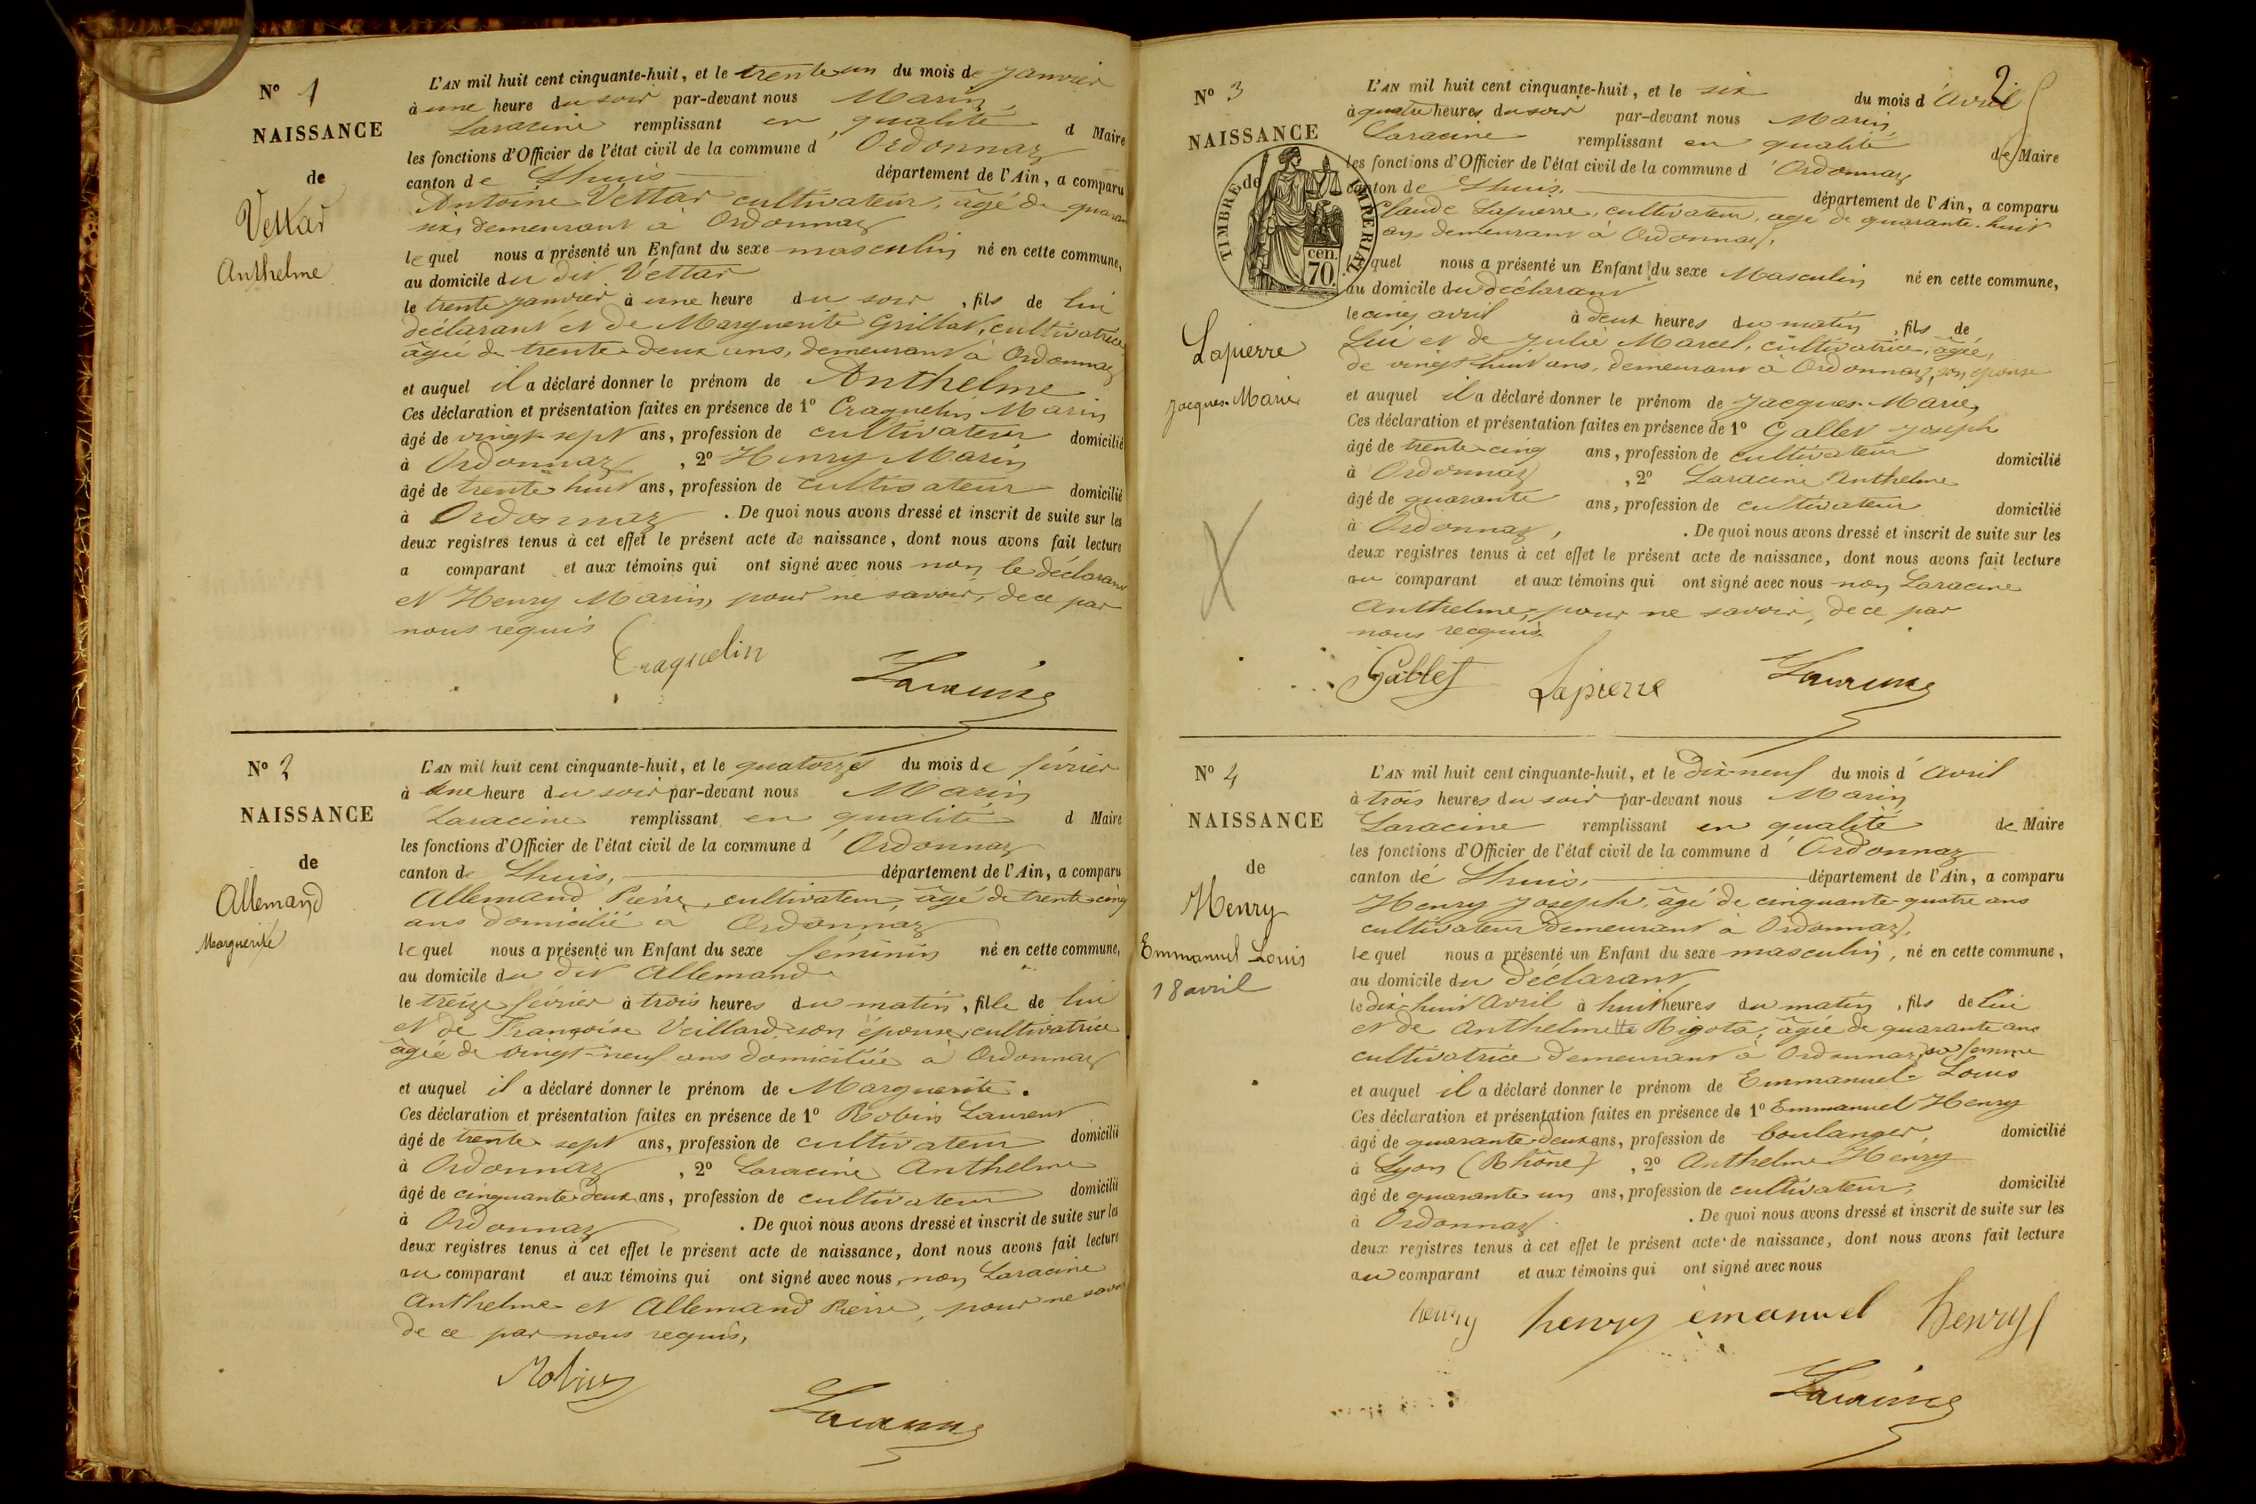 N° 1
NAISSANCE
de
Vettar
Anthelme
L'AN mil huit cent cinquante-huit, et le trente un du mois de janvier
à une heure du soir par-devant nous Marin
Laracine remplissant en qualité d Maire
les fonctions d'Officier de l'état civil de la commune d'Ordonnaz
canton de Lhuis département de l'Ain, a comparu
Antoine Vettar cultivateur, âgé de quaran
six, demeurant à Ordonnaz
lequel nous a présenté un Enfant du sexe masculin né en cette commune,
au domicile du dit Vettar
le trente janvier à une heure du soir, fils de lui
déclarant et de Marguerite Grillat, cultivatrice
âgée de trente-deux ans, demeurant à Ordonnaz
et auquel il a déclaré donner le prénom de Anthelme
Ces déclaration et présentation faites en présence de 1° Craquelin Marin
âgé de vingt-sept ans, profession de cultivateur domicilié
à Ordonnaz, 2° Henry Marin
âgé de trente huit ans, profession de cultivateur domicilié
à Ordonnaz. De quoi nous avons dressé et inscrit de suite sur les
deux registres tenus à cet effet le présent acte de naissance, dont nous avons fait lecture
a comparant et aux témoins qui ont signé avec nous non le déclarant
et Henry Marin, pour ne savoir, de ce par
nous requis
Craquelin Laracine
N° 2
NAISSANCE
de
Allemand
Marguerite
L'AN mil huit cent cinquante-huit, et le quatorze du mois de février
à une heure du soir par-devant nous Marin
Laracine remplissant en qualité d Maire
les fonctions d'Officier de l'état civil de la commune d'Ordonnaz
canton de Lhuis, département de l'Ain, a comparu
Allemand Pierre, cultivateur, âgé de trente-cinq
ans domicilié à Ordonnaz
lequel nous a présenté un Enfant du sexe féminin né en cette commune,
au domicile du dit Allemand
le treize février à trois heures du matin, fille de lui
et de Françoise Veillard son épouse, cultivatrice
âgée de vingt-neuf ans domiciliée à Ordonnaz
et auquel il a déclaré donner le prénom de Marguerite.
Ces déclaration et présentation faites en présence de 1° Robin Laurent
âgé de trente sept ans, profession de cultivateur domicilié
à Ordonnaz, 2° Laracine Anthelme
âgé de cinquante deux ans, profession de cultivateur domicilié
à Ordonnaz. De quoi nous avons dressé et inscrit de suite sur les
deux registres tenus à cet effet le présent acte de naissance, dont nous avons fait lecture
au comparant et aux témoins qui ont signé avec nous, non Laracine
Anthelme et Allemand Pierre, pour ne savoir
de ce par nous requis,
Robin Laracine
2
N° 3
NAISSANCE
de
TIMBRE IMPERIAL
70 cen.
Lapierre
Jacques-Marie
L'AN mil huit cent cinquante-huit, et le six du mois d'avril
à quatre heures du soir par-devant nous Marin
Laracine remplissant en qualité de Maire
les fonctions d'Officier de l'état civil de la commune d'Ordonnaz
canton de Lhuis, département de l'Ain, a comparu
Claude Lapierre, cultivateur, âgé de quarante-huit
ans demeurant à Ordonnaz,
lequel nous a présenté un Enfant du sexe Masculin né en cette commune,
au domicile du déclarant
le cinq avril à deux heures du matin, fils de
Lui et de Julie Marcel, cultivatrice, âgée,
de vingt huit ans, demeurant à Ordonnaz, son épouse
et auquel il a déclaré donner le prénom de Jacques-Marie,
Ces déclaration et présentation faites en présence de 1° Gallet Joseph
âgé de trente cinq ans, profession de cultivateur domicilié
à Ordonnaz, 2° Laracine Anthelme
âgé de quarante ans, profession de cultivateur domicilié
à Ordonnaz,. De quoi nous avons dressé et inscrit de suite sur les
deux registres tenus à cet effet le présent acte de naissance, dont nous avons fait lecture
au comparant et aux témoins qui ont signé avec nous non Laracine
Anthelme, pour ne savoir, de ce par
nous recquis.
Gallet Lapierre Laracine
N° 4
NAISSANCE
de
Henry
Emmanuel Louis
18 avril
L'AN mil huit cent cinquante-huit, et le Dix-neuf du mois d'avril
à trois heures du soir par-devant nous Marin
Laracine remplissant en qualité de Maire
les fonctions d'Officier de l'état civil de la commune d'Ordonnaz
canton de Lhuis, département de l'Ain, a comparu
Henry Joseph, âgé de cinquante-quatre ans
cultivateur demeurant à Ordonnaz,
lequel nous a présenté un Enfant du sexe masculin, né en cette commune,
au domicile du déclarant
le dix-huit avril à huit heures du matin, fils de lui
et de Anthelmette Rigota, âgée de quarante ans
cultivatrice demeurant à Ordonnaz, sa femme
et auquel il a déclaré donner le prénom de Emmanuel-Louis
Ces déclaration et présentation faites en présence de 1° Emmanuel Henry
âgé de quarante-deux ans, profession de boulanger, domicilié
à Lyon (Rhône), 2° Anthelme Henry
âgé de quarante un ans, profession de cultivateur, domicilié
à Ordonnaz. De quoi nous avons dressé et inscrit de suite sur les
deux registres tenus à cet effet le présent acte de naissance, dont nous avons fait lecture
au comparant et aux témoins qui ont signé avec nous
henry henry emanuel henry
Laracine